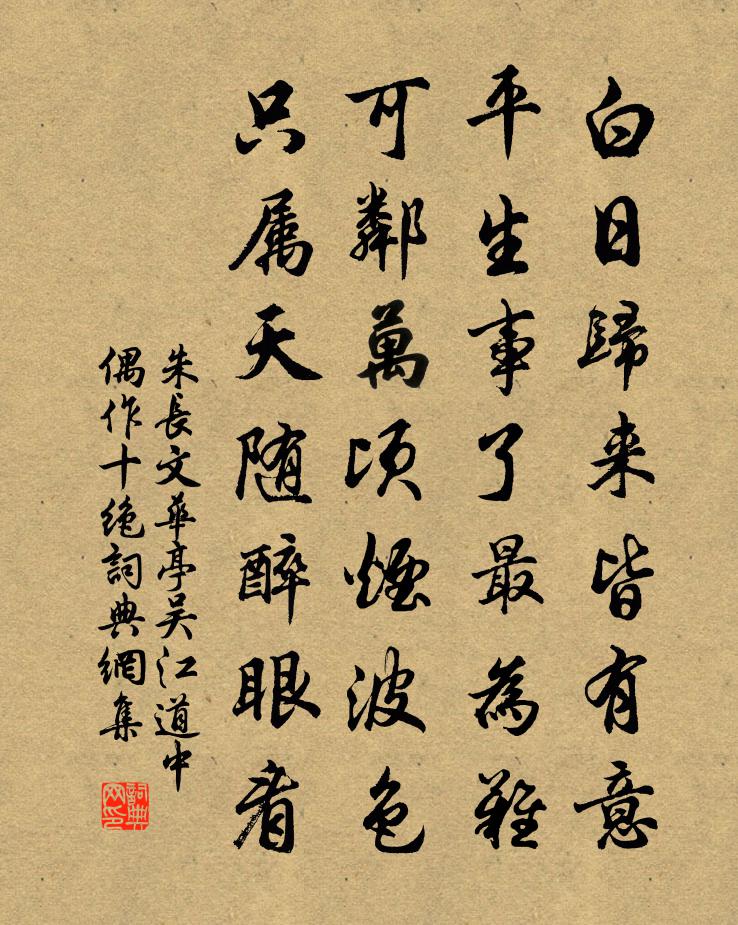 白日歸来皆有意
平生事了最為難
可鄰萬頃煙波色
只属天随醉眼看
朱長文華亭吴江道中
偶作十絶詞典網集
詞典网印